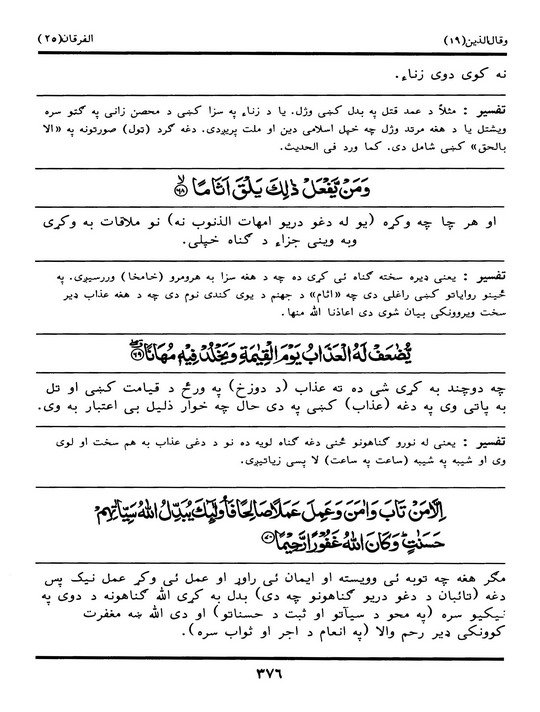 وقال‌الذین(۱۹)
الفرقان(۲۵)
نه کوی دوی زناء.
تفسیر : مثلاً د عمد قتل په بدل کښی وژل. یا د زناء په سزا کښی د محصن زانی په گتو سره
ویشتل یا د هغه مرتد وژل چه خپل اسلامی دین او ملت پریږدی. دغه گرد (ټول) صورتونه په «الا
بالحق» کښی شامل دی. کما ورد فی الحدیث.
وَمَنْ يَّفْعَلْ ذٰلِكَ يَلْقَ اَثَامًا ۙ﴿۶۸﴾
او هر چا چه وکړه (یو له دغو دریو امهات الذنوب نه) نو ملاقات به وکړی
وبه وینی جزاء د گناه خپلی.
تفسیر : یعنی ډیره سخته گناه ئی کړی ده چه د هغه سزا به هرومرو (خامخا) وررسیږی. په
ځینو روایاتو کښی راغلی دی چه «اثام» د جهنم د یوی کندی نوم دی چه د هغه عذاب ډیر
سخت ویروونکی بیان شوی دی اعاذنا الله منها.
يُّضٰعَفْ لَهُ الْعَذَابُ يَوْمَ الْقِيٰمَةِ وَيَخْلُدْ فِيْهٖ مُهَانًا ﴿۶۹﴾
چه دوچند به کړی شی ده ته عذاب (د دوزخ) په ورځ د قیامت کښی او تل
به پاتی وی په دغه (عذاب) کښی په دی حال چه خوار ذلیل بی اعتبار به وی.
تفسیر : یعنی له نورو گناهونو ځنی دغه گناه لویه ده نو د دغی عذاب به هم سخت او لوی
وی او شیبه په شیبه (ساعت په ساعت) لا پسی زیاتیږی.
اِلَّا مَنْ تَابَ وَاٰمَنَ وَعَمِلَ عَمَلًا صَالِحًا فَاُولٰٓئِكَ يُبَدِّلُ اللّٰهُ سَيِّاٰتِهِمْ
حَسَنٰتٍ ؕ وَكَانَ اللّٰهُ غَفُوْرًا رَّحِيْمًا ﴿۷۰﴾
مگر هغه چه توبه ئی وویسته او ایمان ئی راوړ او عمل ئی وکړ عمل نیک پس
دغه (تائبان د دغو دریو گناهونو چه دی) بدل به کړی الله گناهونه د دوی په
نیکیو سره (په محو د سیآتو او ثبت د حسناتو) او دی الله ښه مغفرت
کوونکی ډیر رحم والا (په انعام د اجر او ثواب سره).
۳۷۶